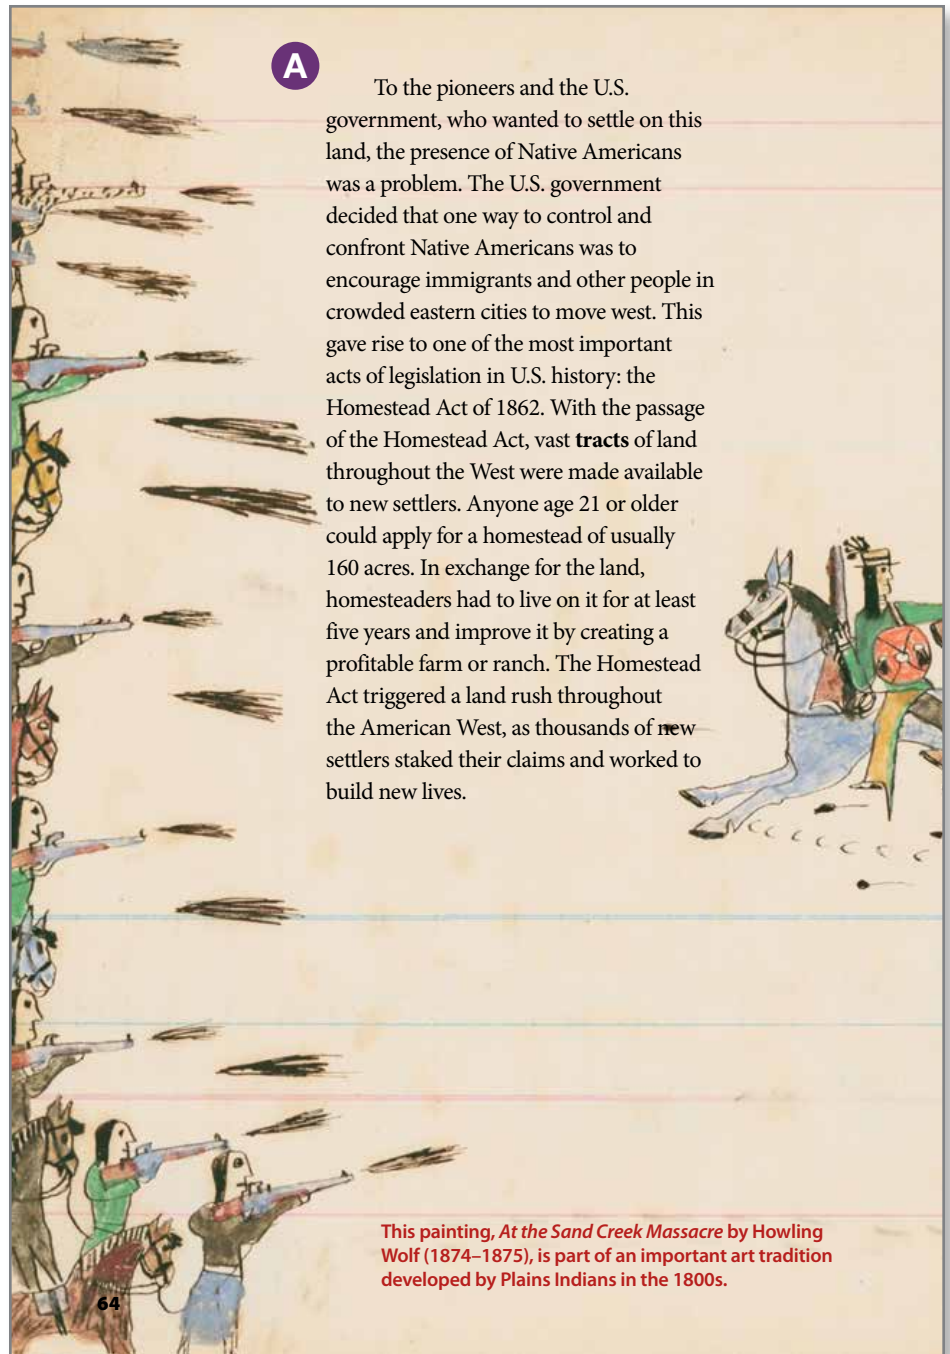 A
To the pioneers and the U.S.
government, who wanted to settle on this
land, the presence of Native Americans
was a problem. The U.S. government
decided that one way to control and
confront Native Americans was to
encourage immigrants and other people in
crowded eastern cities to move west. This
gave rise to one of the most important
acts of legislation in U.S. history: the
Homestead Act of 1862. With the passage
of the Homestead Act, vast tracts of land
throughout the West were made available
to new settlers. Anyone age 21 or older
could apply for a homestead of usually
160 acres. In exchange for the land,
homesteaders had to live on it for at least
five years and improve it by creating a
profitable farm or ranch. The Homestead
Act triggered a land rush throughout
the American West, as thousands of new
settlers staked their claims and worked to
build new lives.
This painting, At the Sand Creek Massacre by Howling
Wolf (1874–1875), is part of an important art tradition
developed by Plains Indians in the 1800s.
64